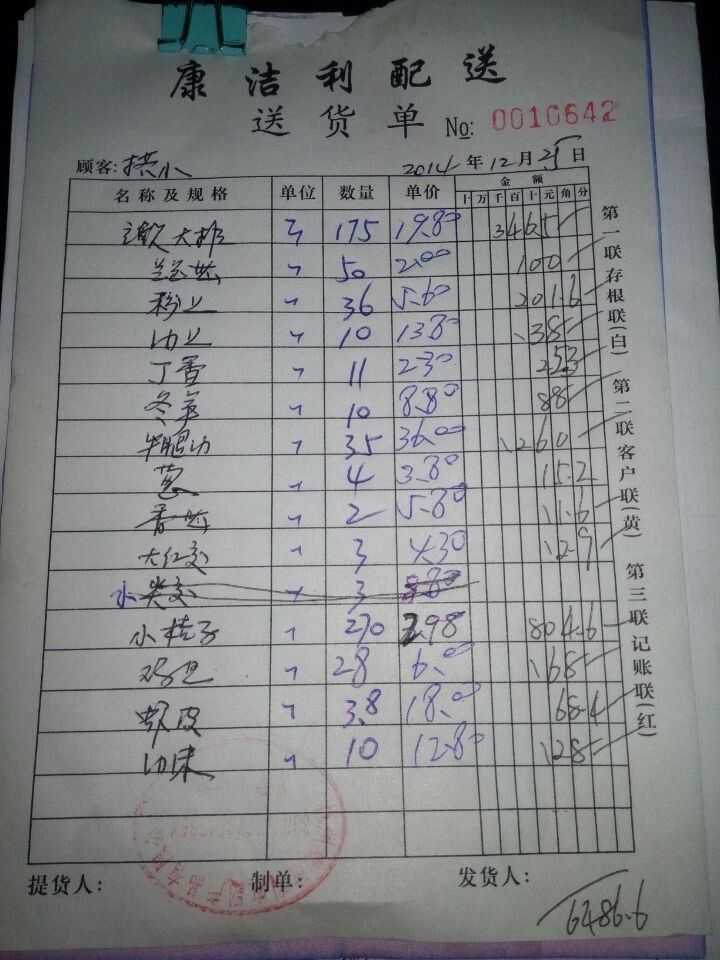 康洁利配送
送货单 No: 0010642
顾客: 拱小 2014年12月25日
名称及规格 单位 数量 单价 金额
十万千百十元角分
大排 斤 175 19.80 3465
〃 50 2.00 100
〃 36 5.60 201.6
〃 10 13.80 138
丁香 〃 11 2.30 25.3
冬笋 〃 10 8.80 88
牛腿肉 〃 35 36.00 1260
葱 〃 4 3.80 15.2
香葱 〃 2 5.80 11.6
大红椒 〃 3 4.30 12.9
小尖椒 〃 3
小桔子 〃 270 2.98 804.6
鸡蛋 〃 28 6.00 168
虾皮 〃 3.8 18.00 68.4
肉末 〃 10 12.80 128
第一联存根联(白)
第二联客户联(黄)
第三联记账联(红)
提货人: 制单: 发货人:
6486.6